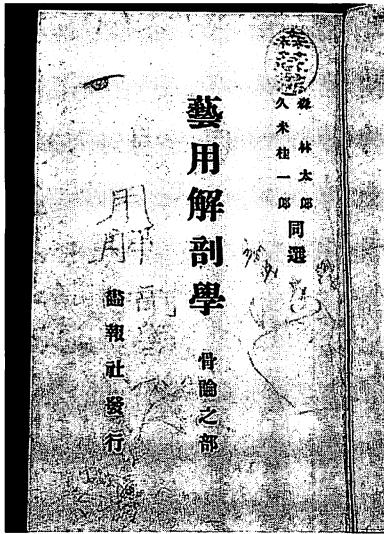 森林太郎
久米桂一郎
同選
藝用解剖學
骨論之部
畫報社發行
用
用解